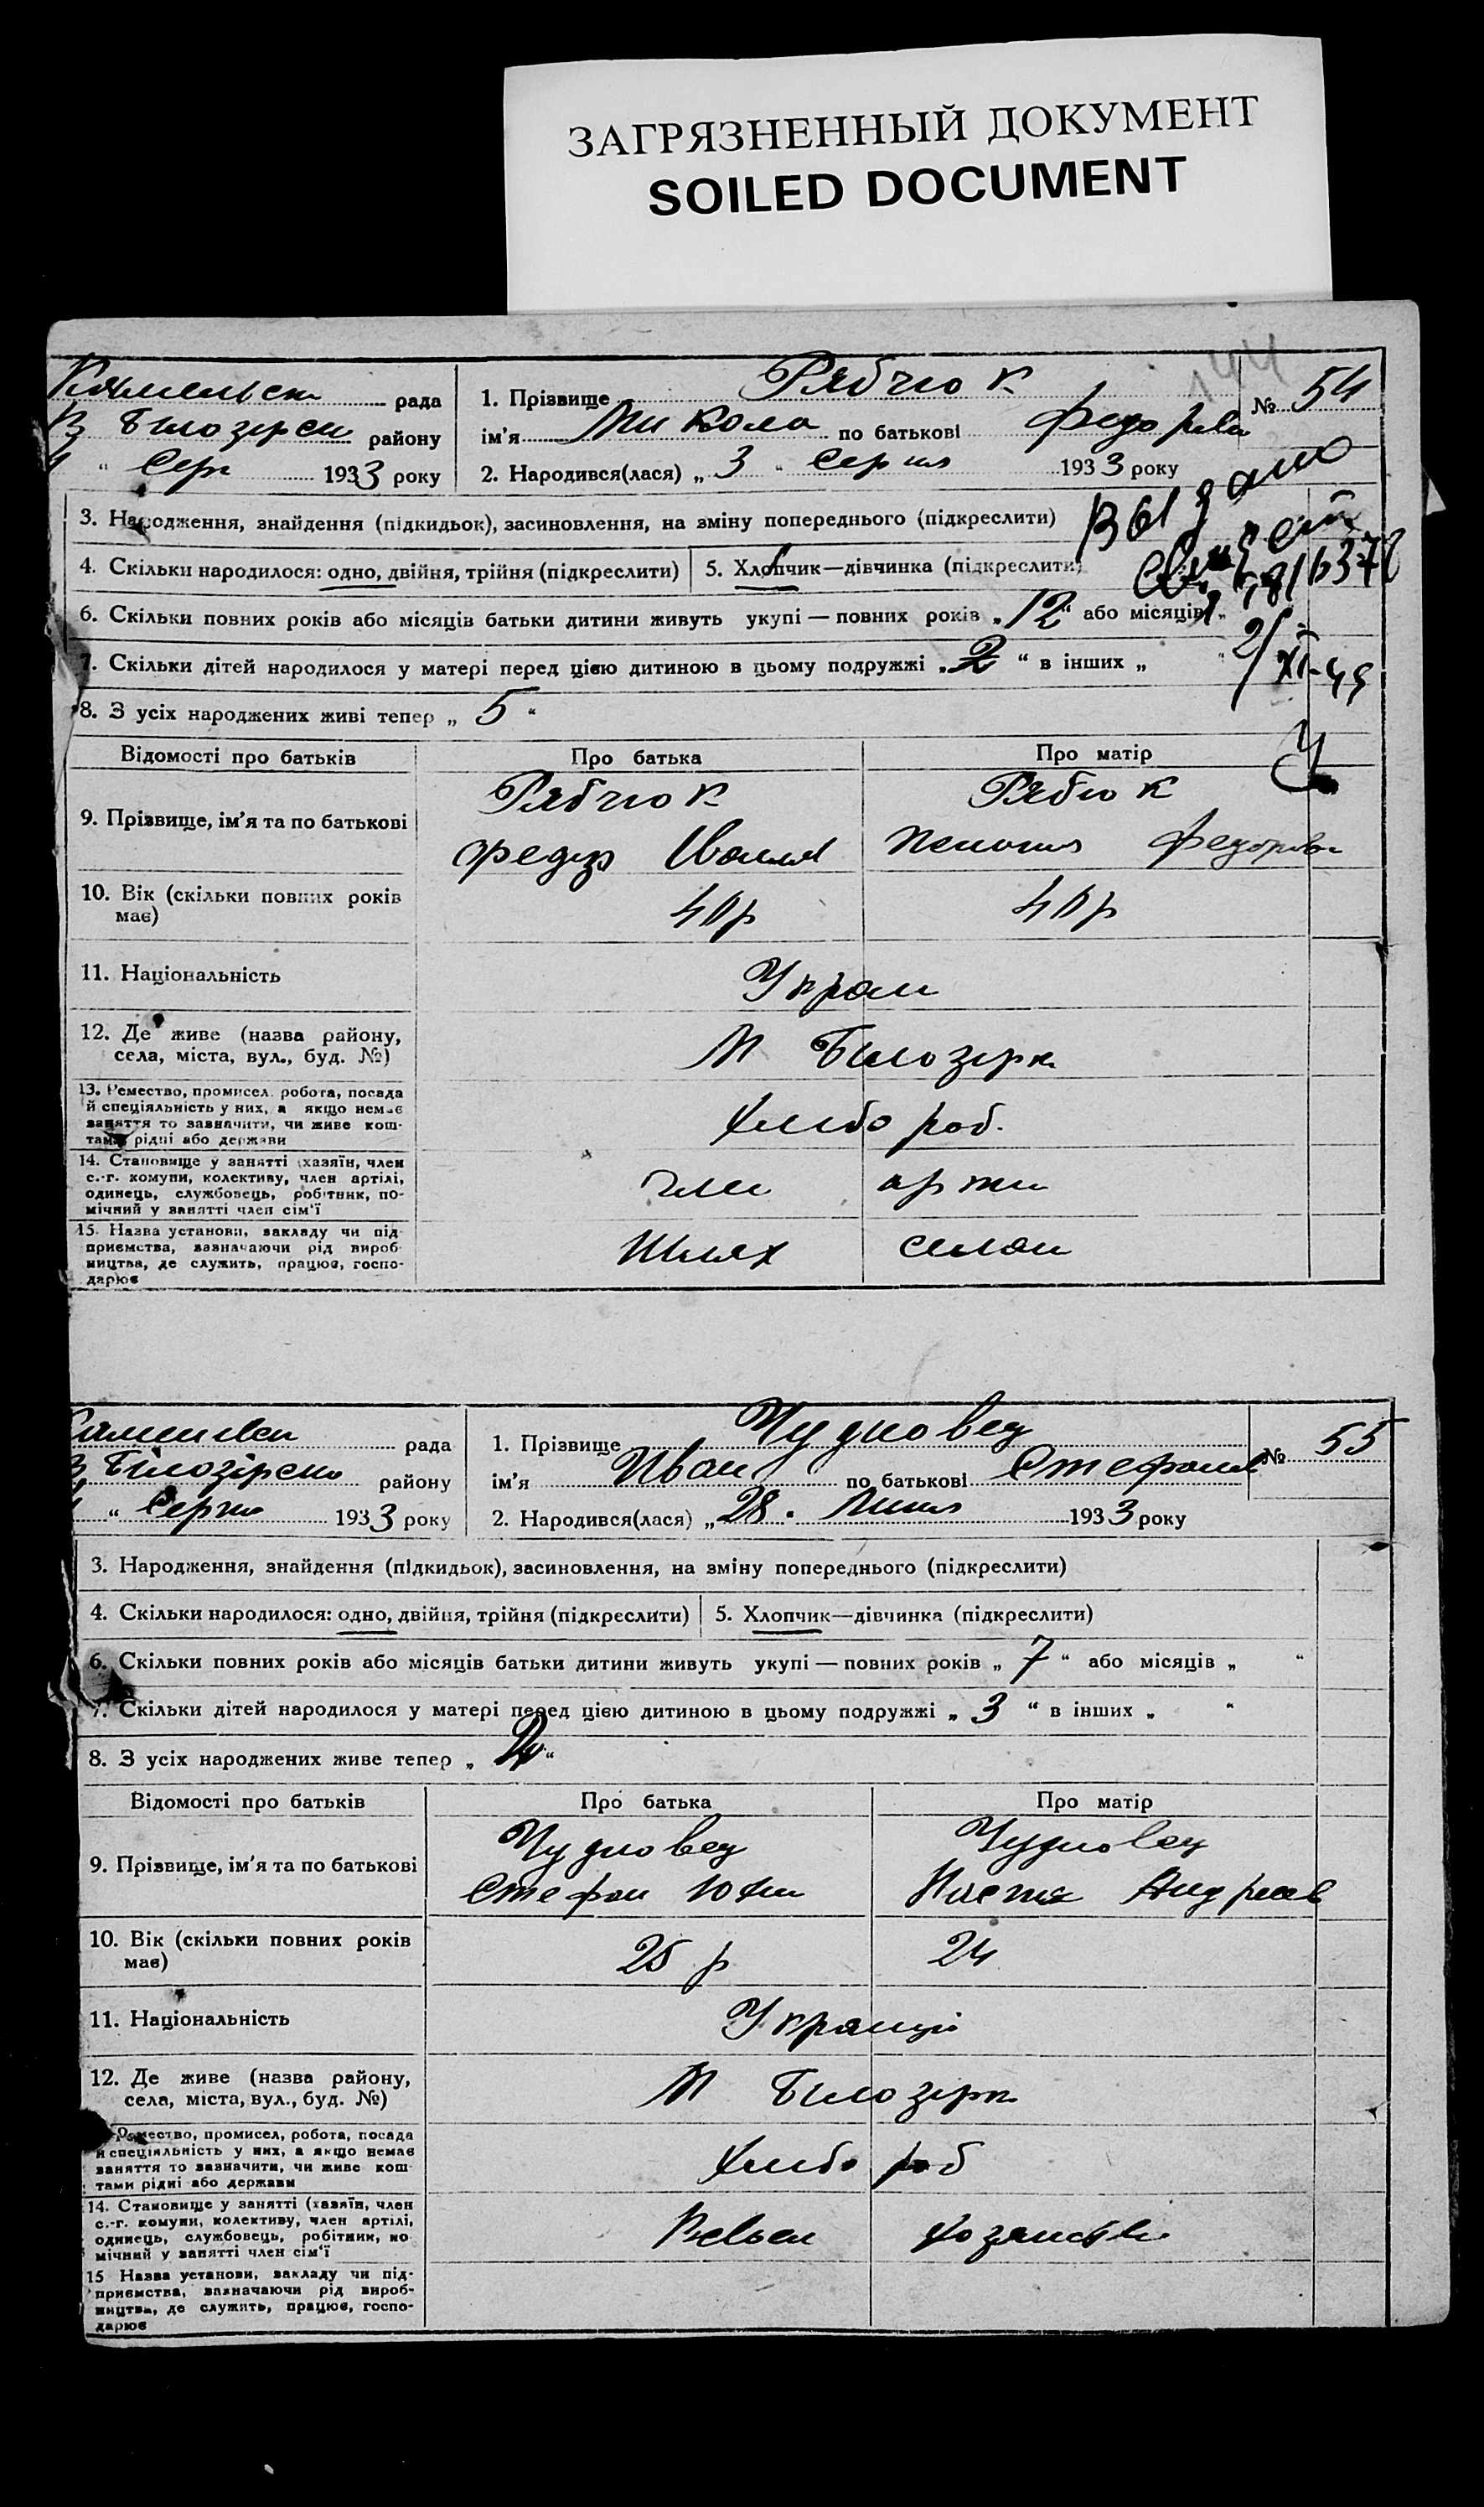 ЗАГРЯЗНЕННЫЙ ДОКУМЕНТ
SOILED DOCUMENT
144
рада
1. Прізвище Рябчюк
№ 54
Білозірськ району
ім’я Микола по батькові Федоров
„ Серп 1933 року
2. Народився(лася) „ 3 “ Серпня 1933 року
3. Народження, знайдення (підкидьок), засиновлення, на зміну попереднього (підкреслити)
Выдано
4. Скільки народилося: одно, двійня, трійня (підкреслити)
5. Хлопчик—дівчинка (підкреслити)
6. Скільки повних років або місяців батьки дитини живуть укупі — повних років „ 12 “ або місяців „
7. Скільки дітей народилося у матері перед цією дитиною в цьому подружжі „ 2 “ в інших „ “
2/XI-45
8. З усіх народжених живі тепер „ 5 “
Відомості про батьків
Про батька
Про матір
9. Прізвище, ім’я та по батькові
Рябчюк
Рябчюк
Федор Іванов
Федоров
10. Вік (скільки повних років
має)
40 р
40 р
11. Національність
Украи
12. Де живе (назва району,
села, міста, вул., буд. №)
М Білозірк
13. Ремество, промисел, робота, посада
й спеціяльність у них, а якщо немає
заняття то зазначити, чи живе кош-
тами рідні або держави
Хлібороб.
14. Становище у занятті (хазяїн, член
с.-г. комуни, колективу, член артілі,
одинець, службовець, робітник, по-
мічний у занятті член сім’ї
член арти
15. Назва установи, закладу чи під-
приємства, зазначаючи рід вироб-
ництва, де служить, працює, госпо-
дарює
Шлях селян
рада
1. Прізвище Чудновец
№ 55
Білозірськ району
ім’я Иван по батькові Стефанов
„ Серпн 1933 року
2. Народився(лася) „ 28 “ Липня 1933 року
3. Народження, знайдення (підкидьок), засиновлення, на зміну попереднього (підкреслити)
4. Скільки народилося: одно, двійня, трійня (підкреслити)
5. Хлопчик—дівчинка (підкреслити)
6. Скільки повних років або місяців батьки дитини живуть укупі — повних років „ 7 “ або місяців „ “
7. Скільки дітей народилося у матері перед цією дитиною в цьому подружжі „ 3 “ в інших „ “
8. З усіх народжених живе тепер „ “
Відомості про батьків
Про батька
Про матір
9. Прізвище, ім’я та по батькові
Чудновец
Чудновец
Стефан Юхим
Настя Андреев
10. Вік (скільки повних років
має)
25 р
24
11. Національність
Українці
12. Де живе (назва району,
села, міста, вул., буд. №)
М Білозірк
Ремество, промисел, робота, посада
й спеціяльність у них, а якщо немає
заняття то зазначити, чи живе кош-
тами рідні або держави
Хлібороб
14. Становище у занятті (хазяїн, член
с.-г. комуни, колективу, член артілі,
одинець, службовець, робітник, по
мічний у занятті член сім’ї
15 Назва установи, закладу чи під-
приємства, зазначаючи рід вироб-
ництва, де служить, працює, госпо-
дарює